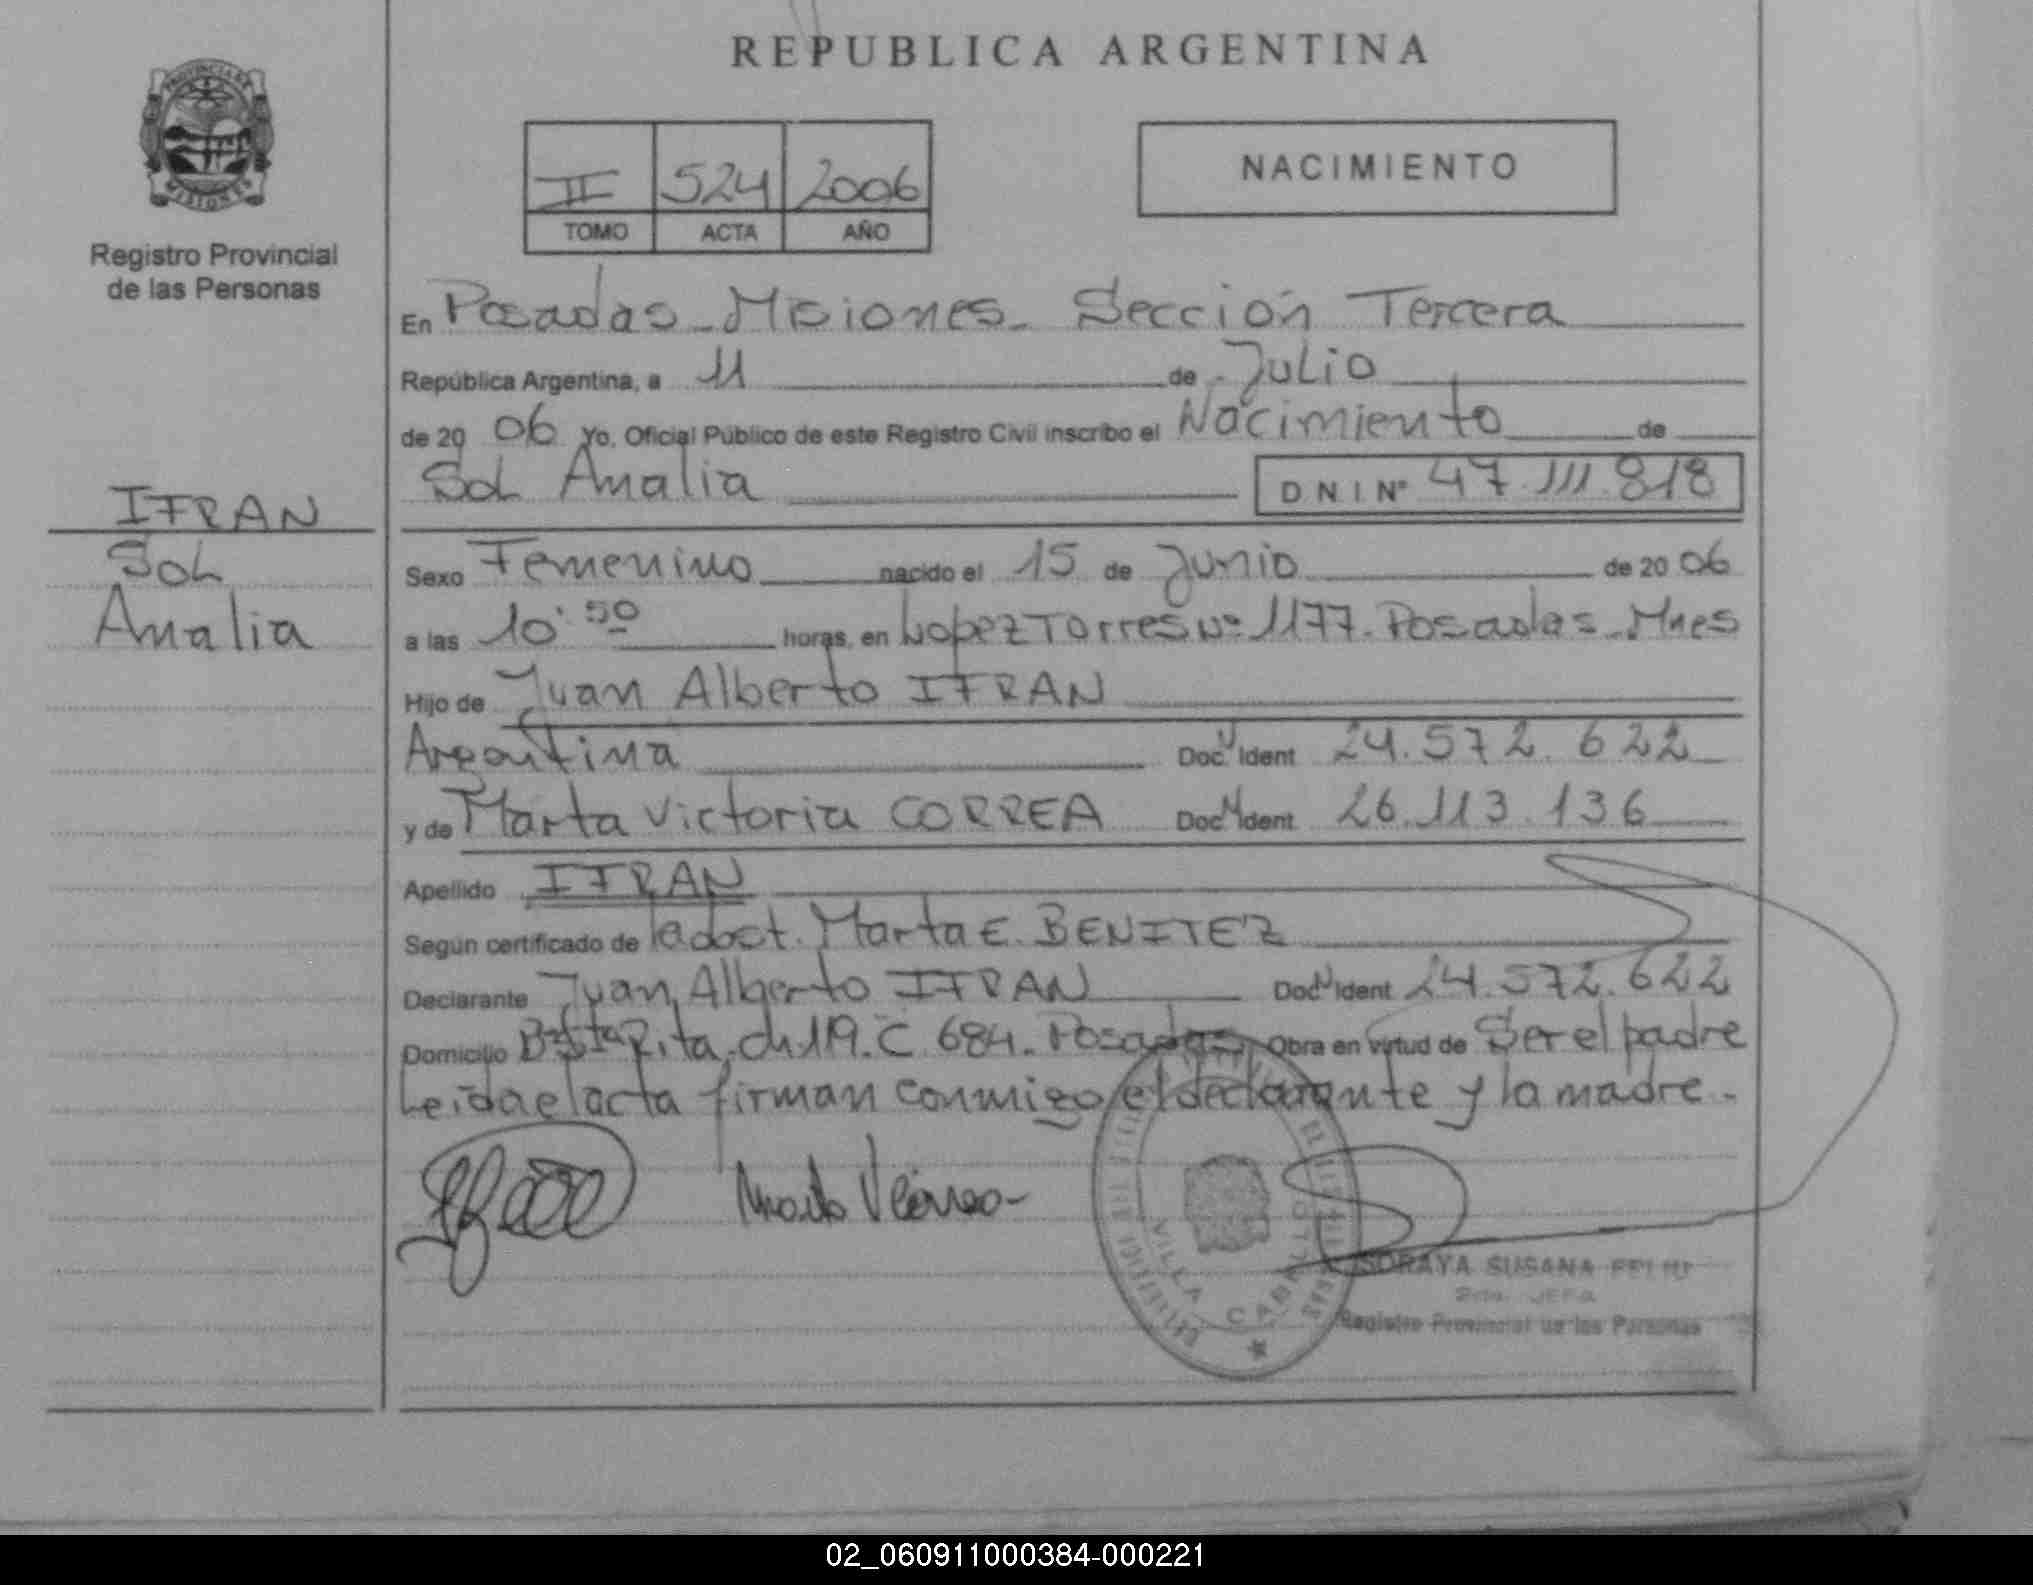 REPUBLICA ARGENTINA
PROVINCIA DE
MISIONES
Registro Provincial
de las Personas
II 524 2006
TOMO ACTA AÑO
NACIMIENTO
En Posadas - Misiones - Sección Tercera
República Argentina, a 11 de Julio
de 2006 Yo, Oficial Público de este Registro Civil inscribo el Nacimiento de
Sol Analia DNI Nº 47.111.818
IFRAN
Sol
Analia
Sexo Femenino nacido el 15 de Junio de 2006
a las 10:50 horas, en Lopez Torres Nº 1177. Posadas - Mnes
Hijo de Juan Alberto IFRAN
Argentina Doc. Ident 24.572.622
y de Marta Victoria CORREA Doc. Ident 26.113.136
Apellido IFRAN
Según certificado de la obst. Marta E. BENITEZ
Declarante Juan Alberto IFRAN Doc. Ident 24.572.622
Domicilio Bº Sta Rita. ch. 119. C 684. Posadas Obra en virtud de Ser el padre
Leida el acta firman conmigo el declarante y la madre.
VILLA CABELLO
SORAYA SUSANA FELIU
JEFA
Registro Provincial de las Personas
02_060911000384-000221